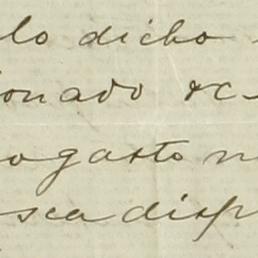 lo dicho
onado &c-
o gasto n
sea disp